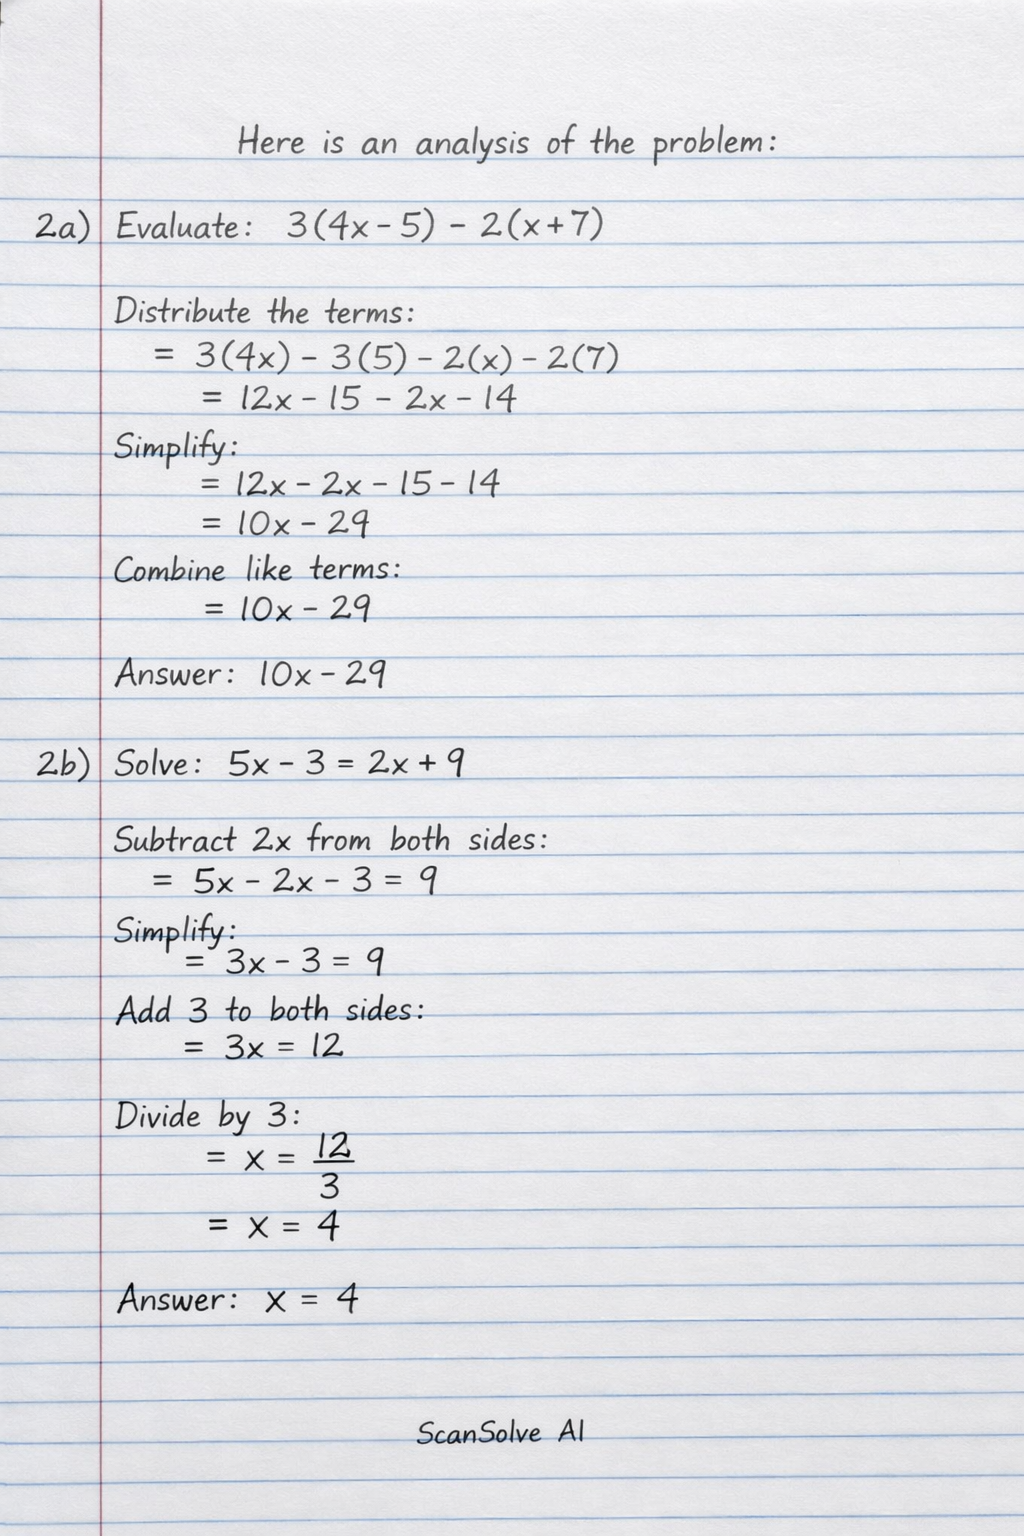 Here is an analysis of the problem:
2a) Evaluate: 3(4x - 5) - 2(x + 7)
Distribute the terms:
= 3(4x) - 3(5) - 2(x) - 2(7)
= 12x - 15 - 2x - 14
Simplify:
= 12x - 2x - 15 - 14
= 10x - 29
Combine like terms:
= 10x - 29
Answer: 10x - 29
2b) Solve: 5x - 3 = 2x + 9
Subtract 2x from both sides:
= 5x - 2x - 3 = 9
Simplify:
= 3x - 3 = 9
Add 3 to both sides:
= 3x = 12
Divide by 3:
= x = 12/3
= x = 4
Answer: x = 4
ScanSolve AI